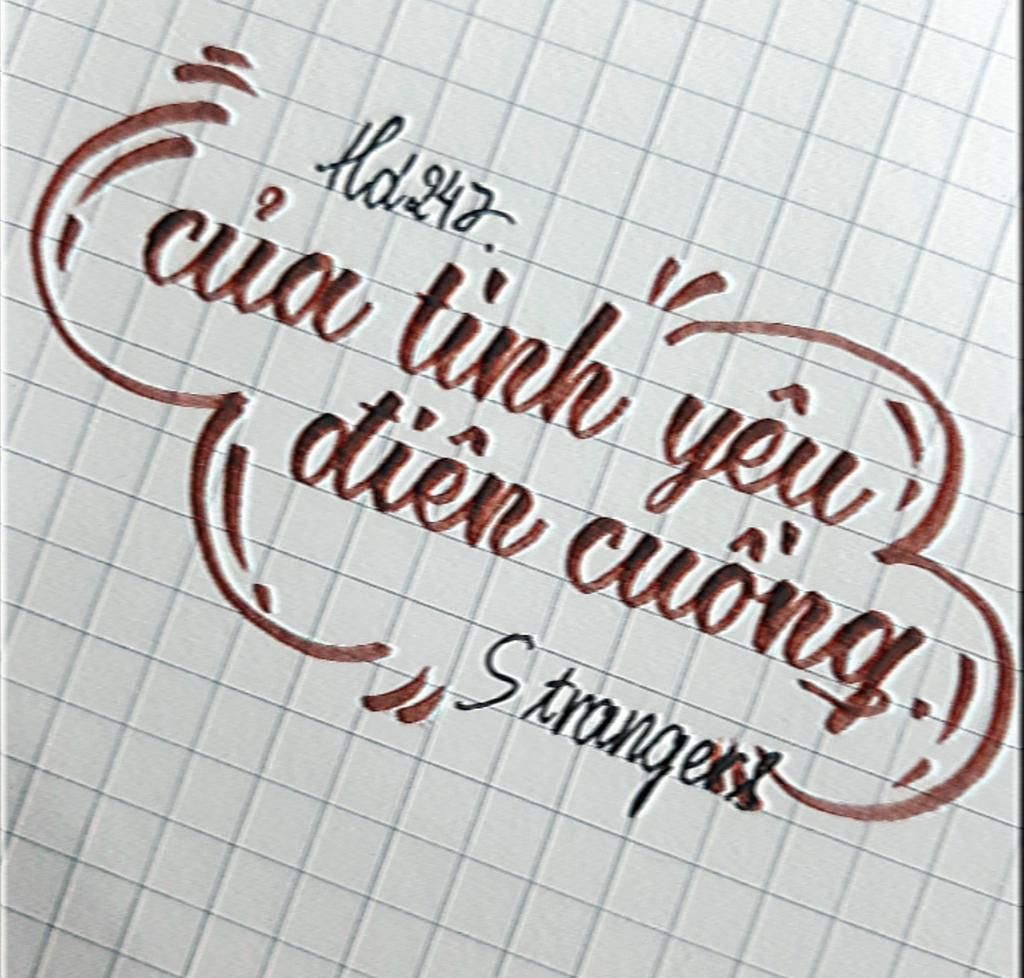 Hd247.
của tình yêu
điên cuồng.
Strangers